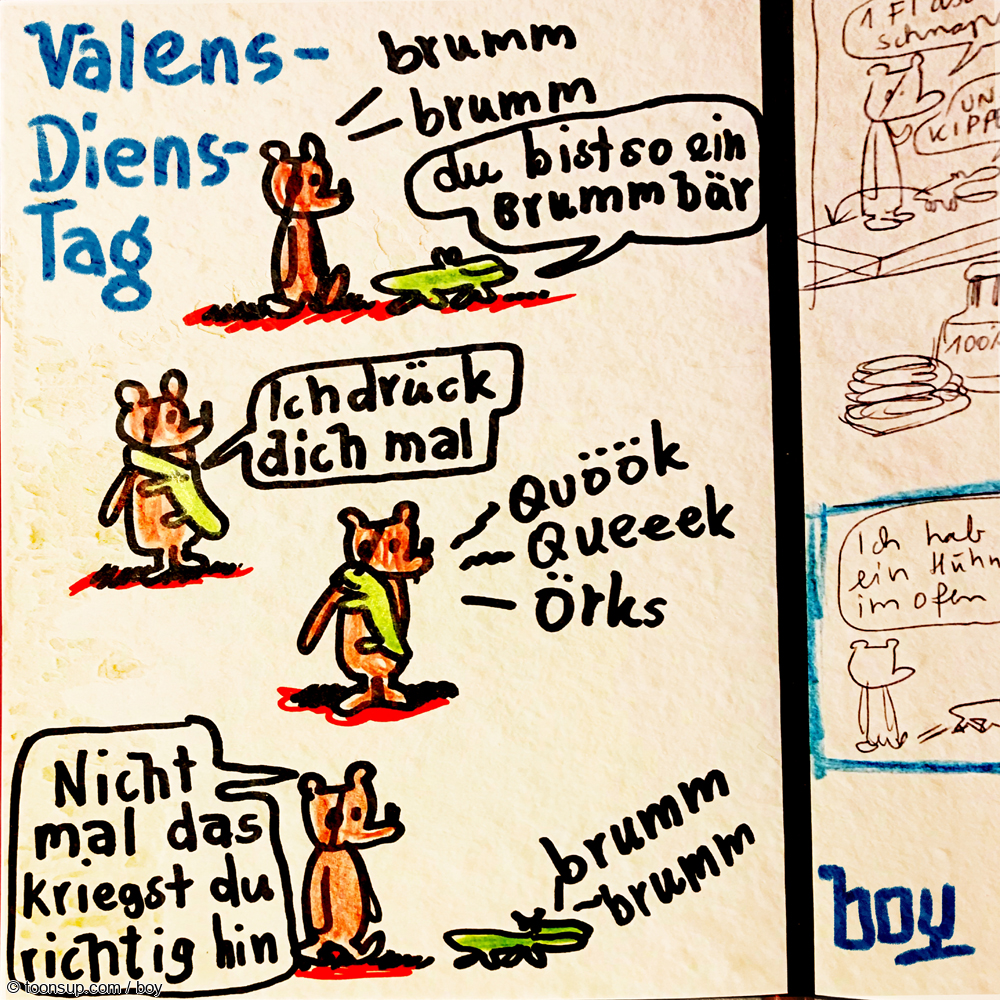 Valens-
Diens-
Tag
brumm
brumm
du bist so ein
Brummbär
Ich drück
dich mal
Quöök
Queeek
Örks
Nicht
mal das
kriegst du
richtig hin
brumm
brumm
© toonsup.com / boy
1 Fl
schnap
UN
KIPP
100%
Ich hab
ein Hühn
im ofen
boy